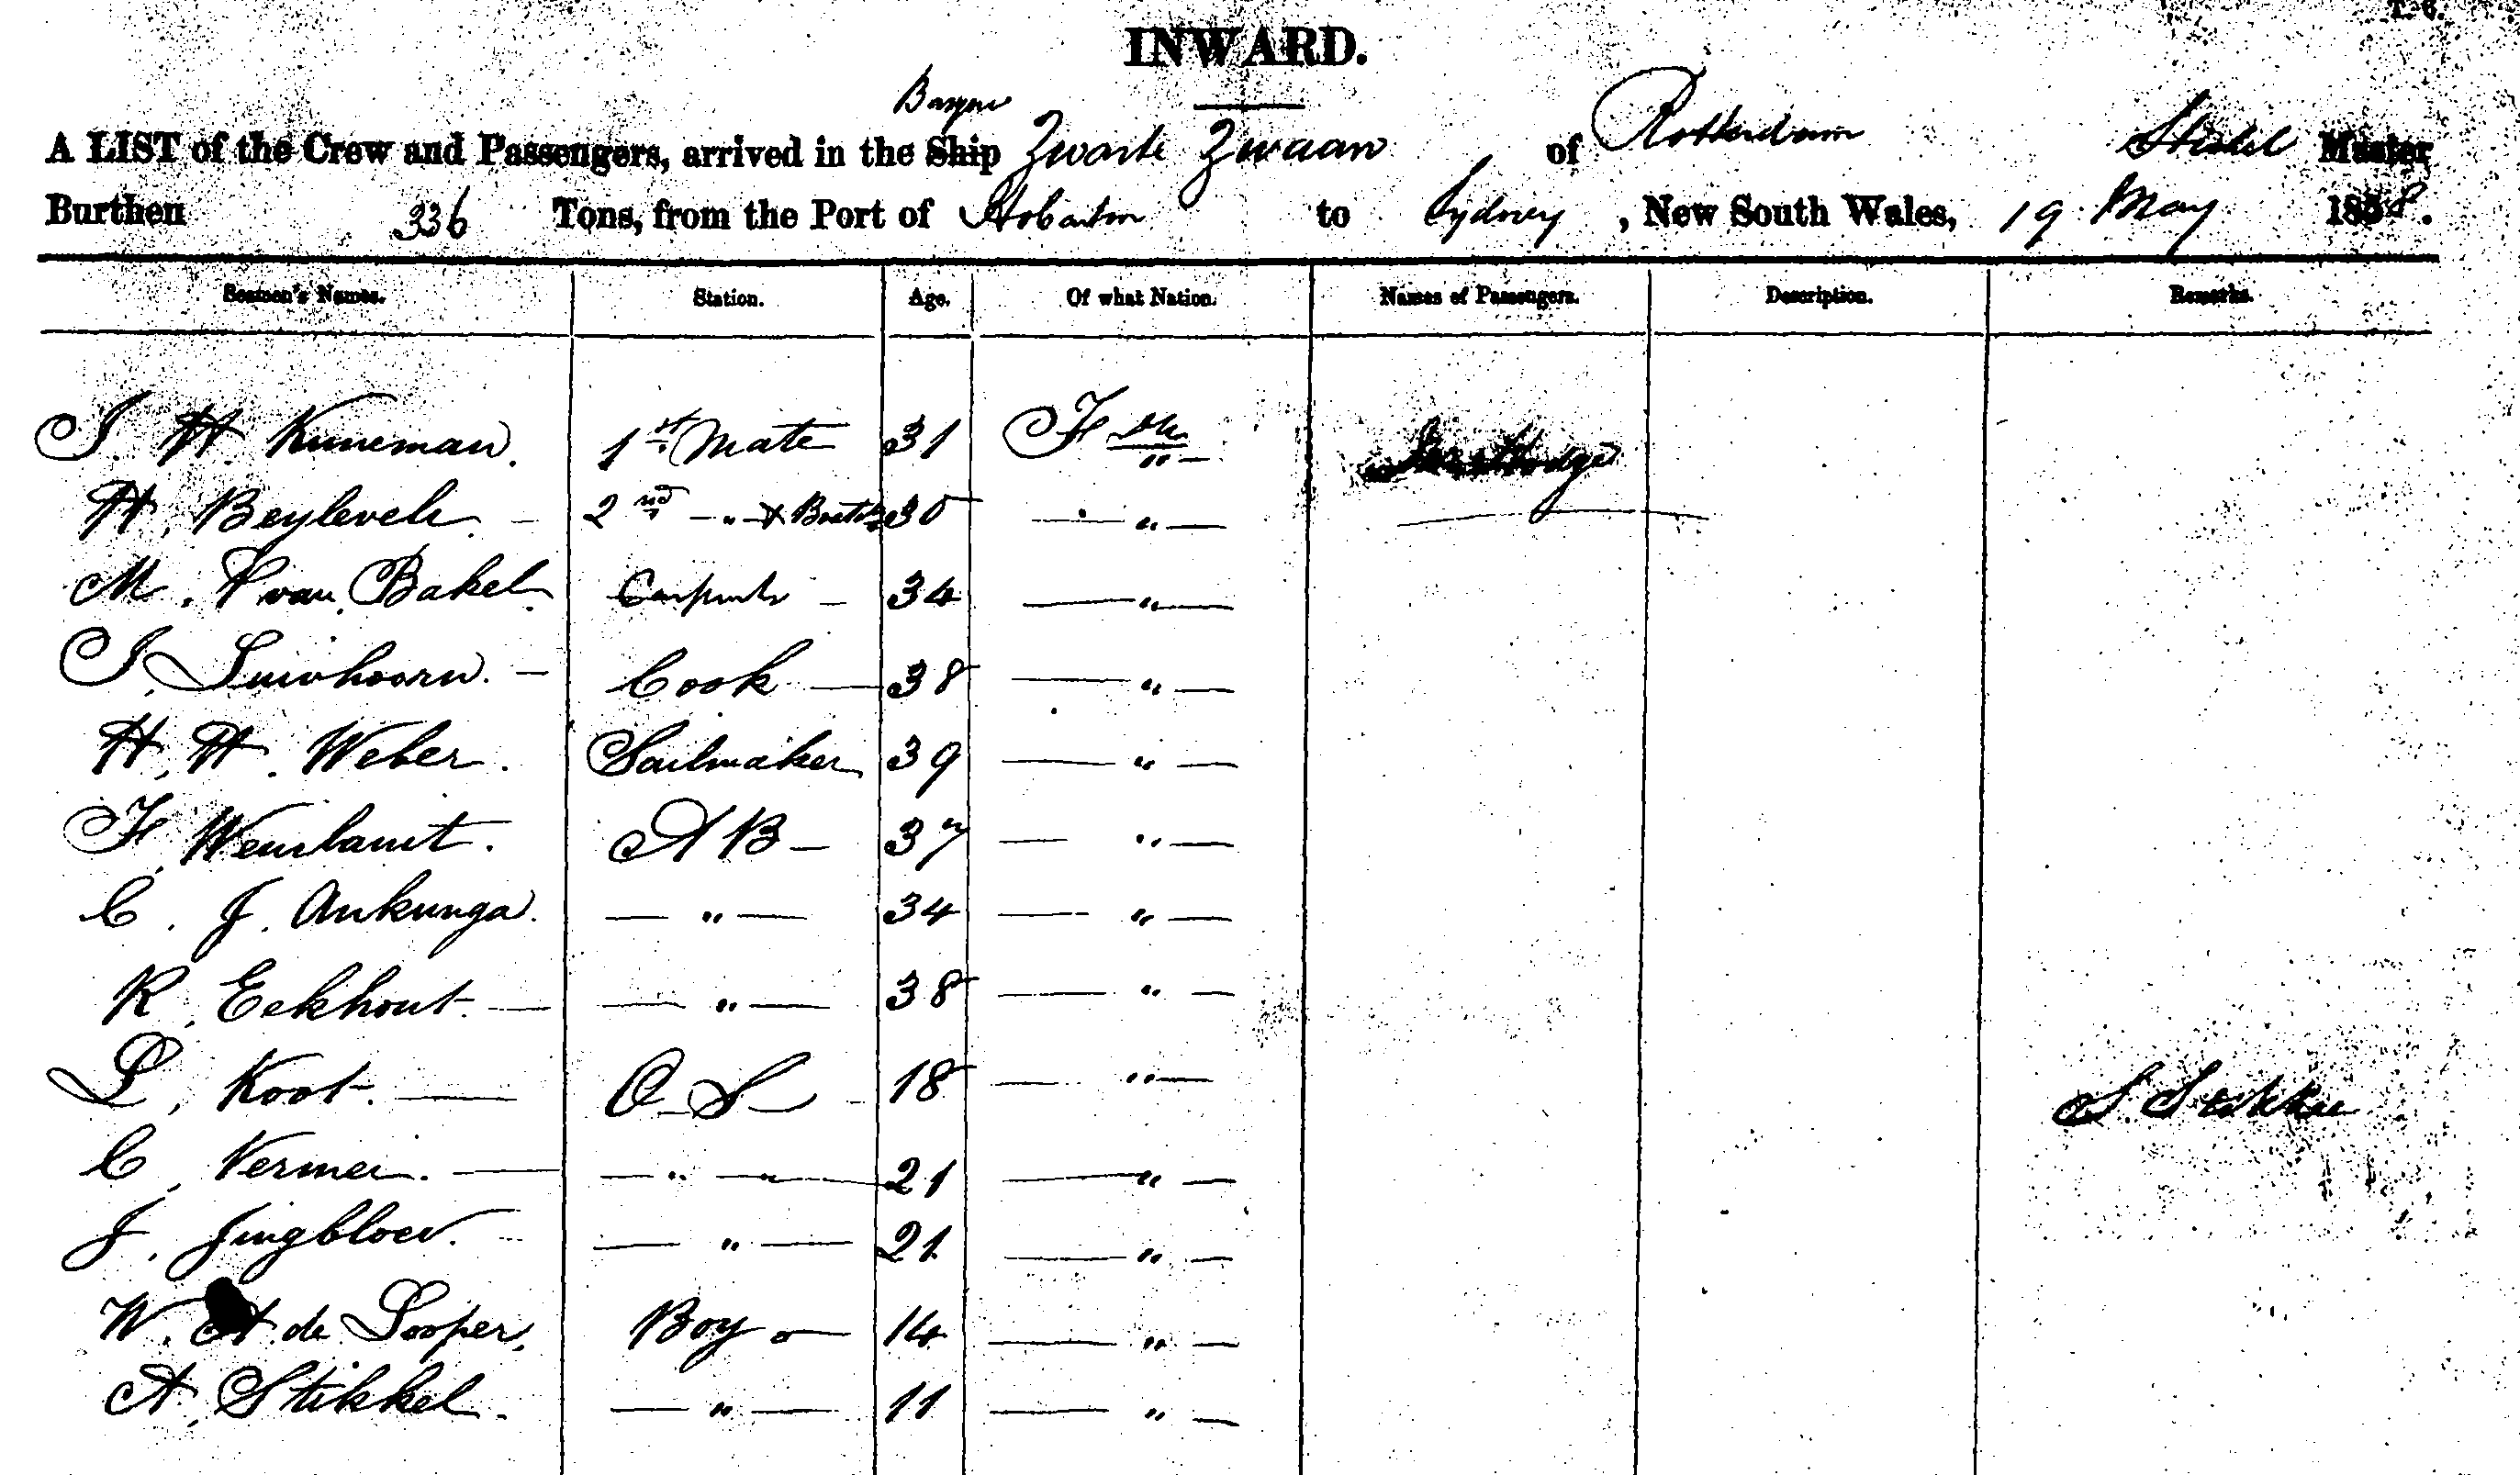 INWARD.
Barque
A LIST of the Crew and Passengers, arrived in the Ship Zwarte Zwaan of Rotterdam Stikkel Master
Burthen 336 Tons, from the Port of Hobarton to Sydney, New South Wales, 19 May 1858.
Seamen's Names. Station. Age. Of what Nation. Names of Passengers. Description. Remarks.
J. H Kuneman. 1st Mate 31
H. Beyleveli. — 2nd — " — & 30 — " —
M. P van Bakel. Carpenter — 34 — " —
J. — Cook — 38 — " —
H. H. Weber. Sailmaker 39 — " —
F. AB — 37 — " —
C. J. Ankunga. — " — 34 — " —
R. Eekhout. — — " — 38 — " —
L. Koot. — O S — 18 — " —
C. Vermei. — — " — " — 21 — " —
J. Jingbloed. — — " — 21 — " —
W. de Looper. Boy — 14 — " —
A. Stikkel. — " — 11 — " —